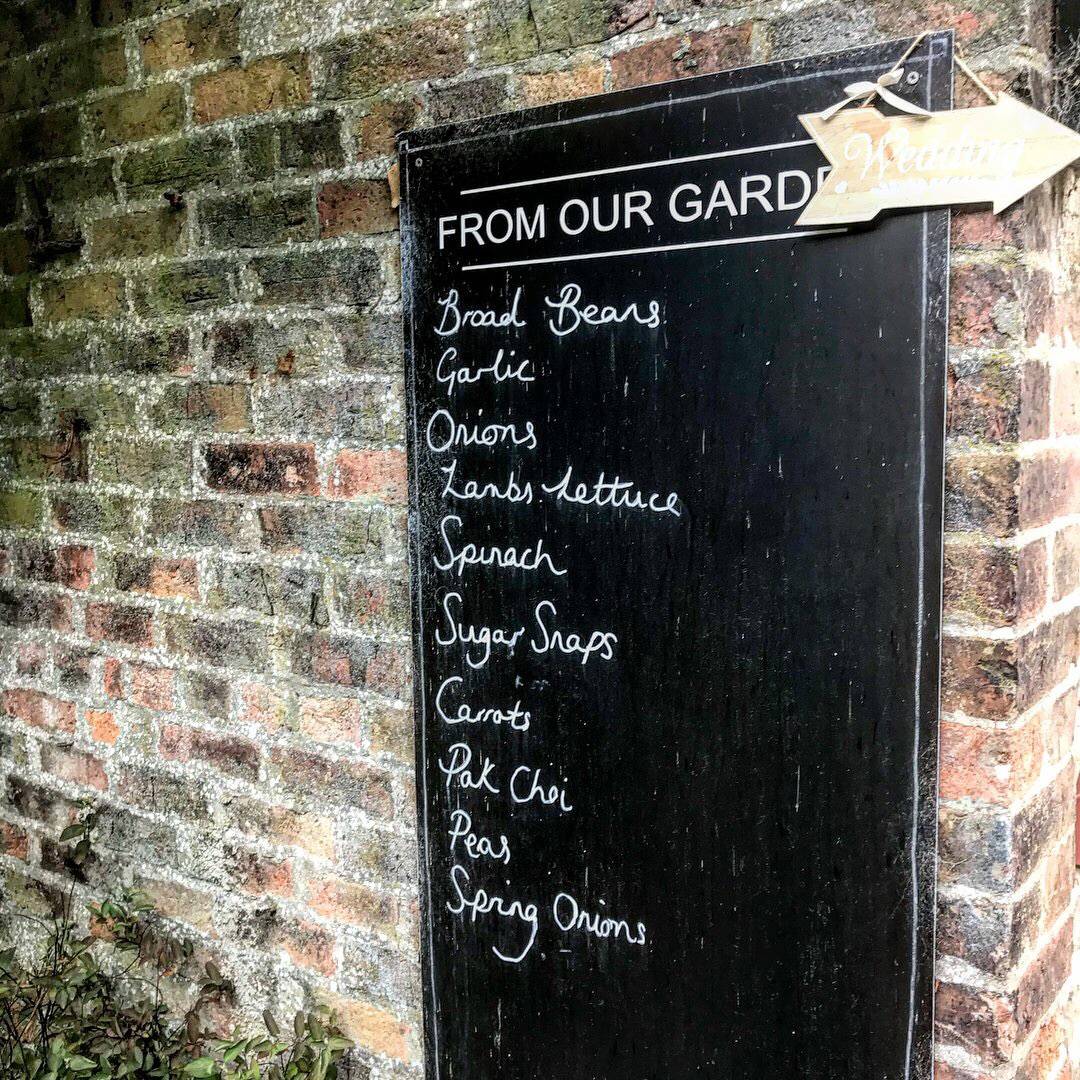 Wedding
FROM OUR GARDE
Broad Beans
Garlic
Onions
Lambs Lettuce
Spinach
Sugar Snaps
Carrots
Pak Choi
Peas
Spring Onions